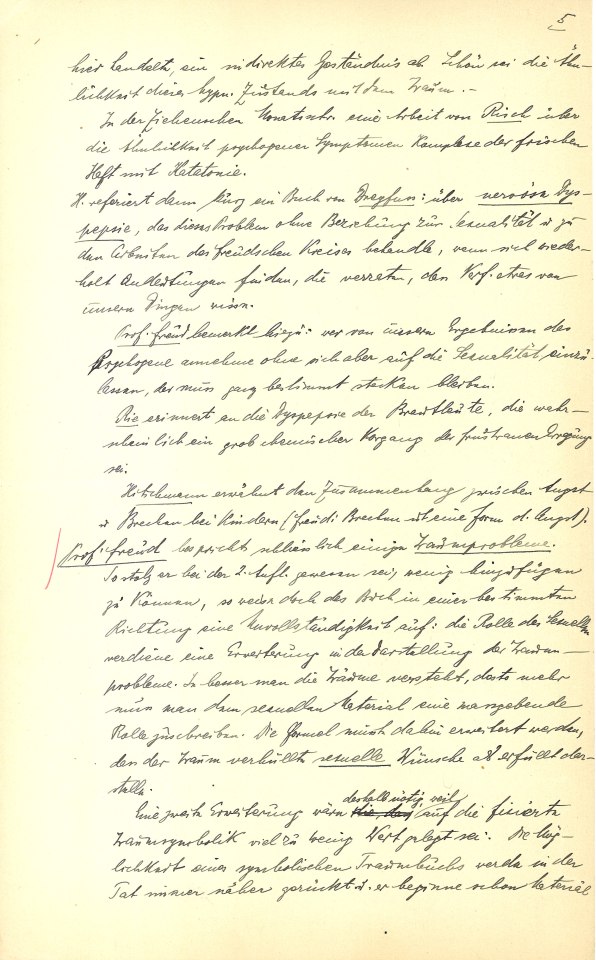 5
hier handelt, ein indirektes Geständnis ab. Schön sei die Ähn-
lichkeit dieses hypn. Zustands mit dem Traum. -
In der Ziehenschen Monatschr. eine Arbeit von Risch über
die Ähnlichkeit psychogener Symptomen Komplexe der frischen
Haft mit Katatonie.
H. referiert dann kurz ein Buch von Dreyfuss: über nervöse Dys-
pepsie, das dieses Problem ohne Beziehung zur Sexualität u zu
den Arbeiten des freudschen Kreises behandle, wenn sich wieder-
holt Andeutungen finden, die verraten, der Verf. etwas von
unsern Dingen wisse.
Prof. Freud bemerkt hiezu: wer von unsern Ergebnissen das
Psychogene annehme ohne sich aber auf die Sexualität, einzu-
lassen, der muss ganz bestimmt stecken bleiben.
Rie erinnert an die Dyspepsie der Brautleute, die wahr-
scheinlich ein grob chemischer Vorgang der frustranen Erregung
sei.
Hitschmann erwähnt den Zusammenhang zwischen Angst
u Brechen bei Kindern (Freud: Brechen ist eine Form d. Angst).
Prof. Freud bespricht schliesslich einige Traumprobleme.
So stolz er bei der 2. Aufl. gewesen sei, wenig hinzufügen
zu können, so weise doch das Buch in einer bestimmten
Richtung eine Unvollständigkeit auf: die Rolle des Sexuellen
verdiene eine Erweiterung in der Darstellung der Traum-
probleme. Je besser man die Träume versteht, desto mehr
muss man dem sexuellen Material eine massgebende
Rolle zuschreiben. Die Formel müsste dahin erweitert werden,
dass der Traum verhüllte sexuelle Wünsche als erfüllt dar-
stelle.
Eine zweite Erweiterung wäre deshalb nötig, weil auf die fixierte
Traumsymbolik viel zu wenig Wert gelegt sei. Die Mög-
lichkeit eines symbolischen Traumbuchs werde in der
Tat immer näher gerückt u. er beginne schon Material